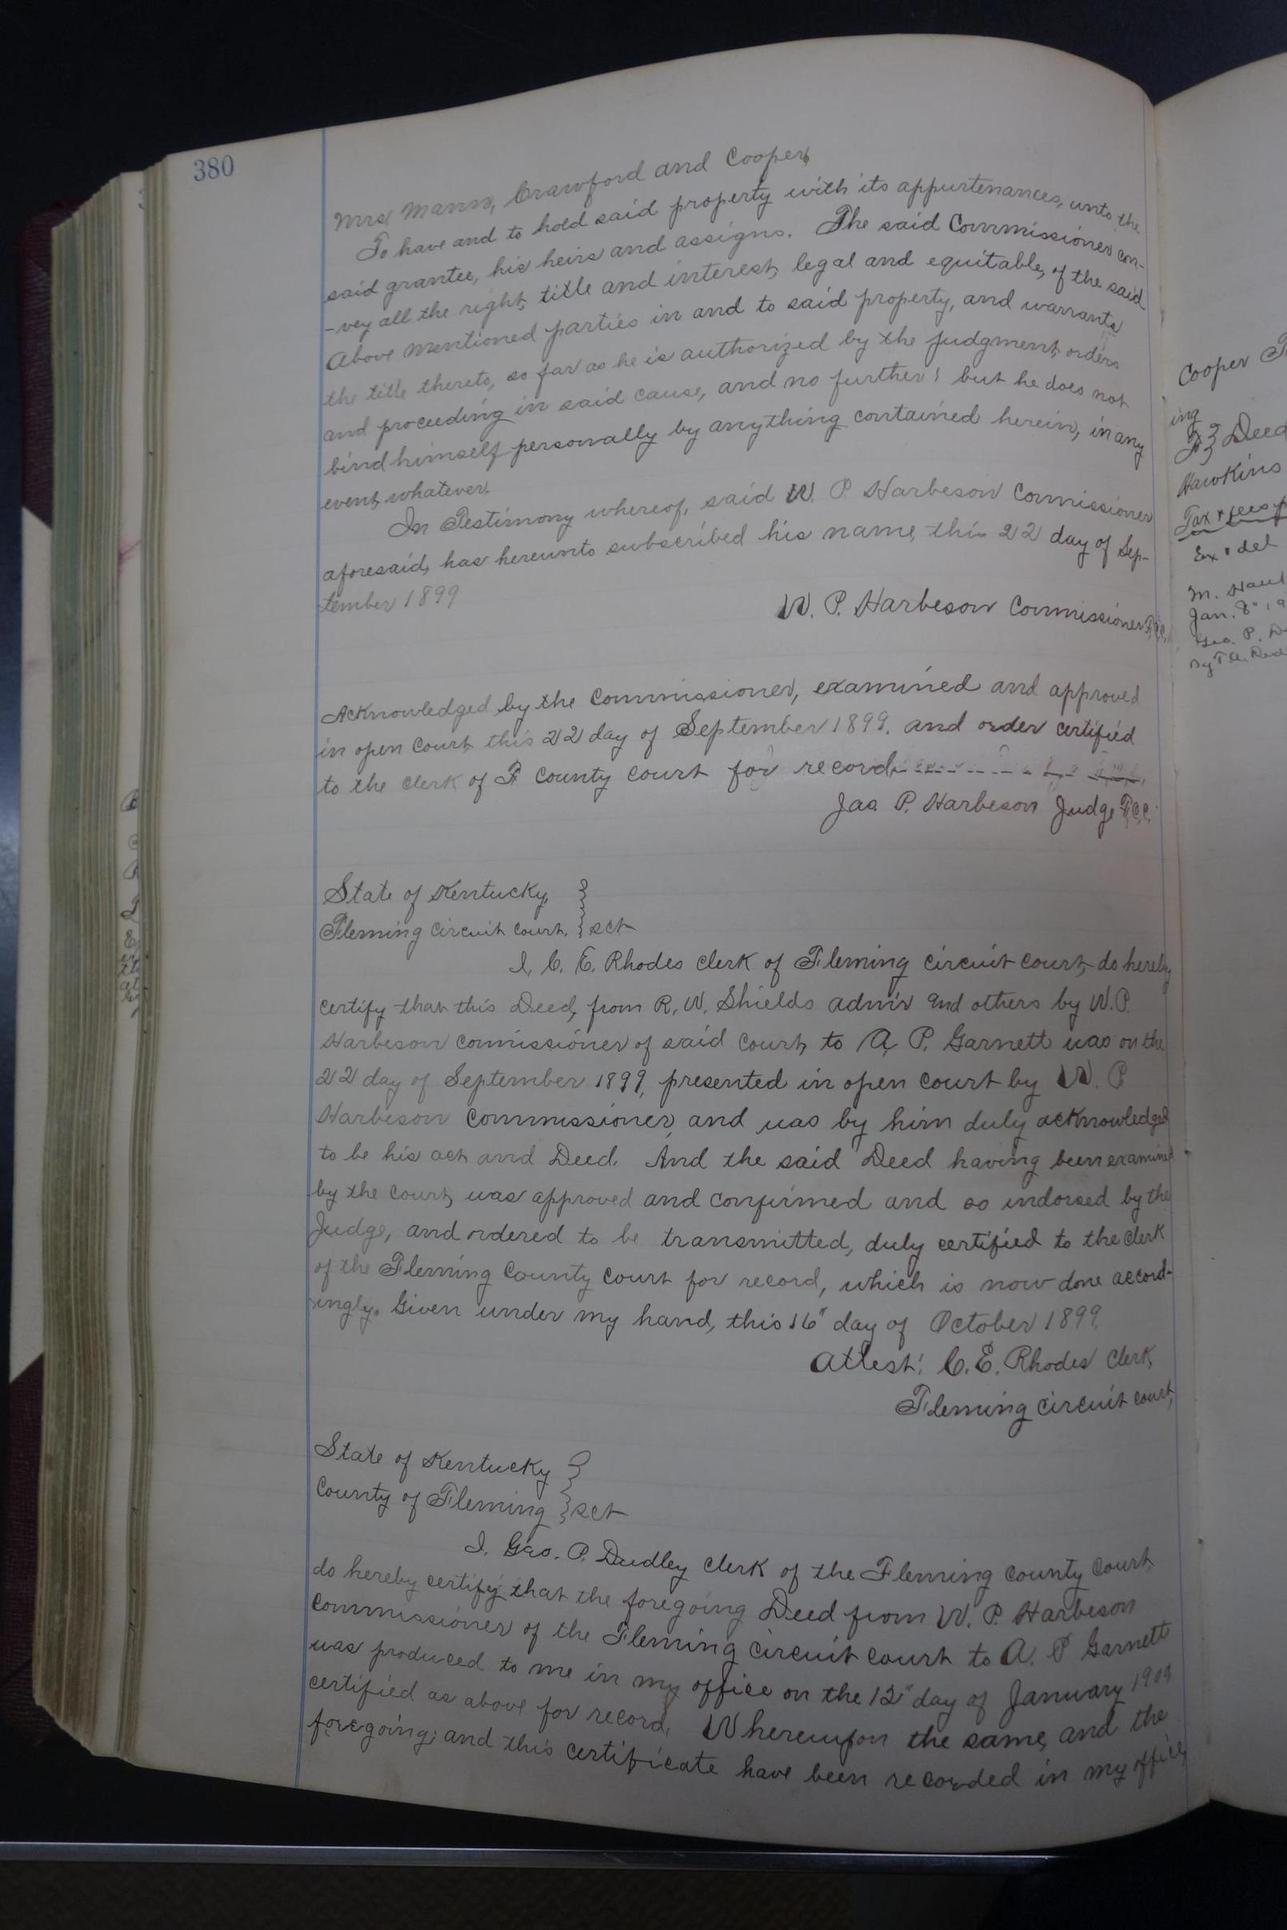 380
Mrs Mann, Crawford and Cooper,
To have and to hold said property with its appurtenances, unto the
said grantee, his heirs and assigns. The said Commissioner con-
-vey all the right, title and interest, legal and equitable, of the said
above mentioned parties in and to said property, and warrants
the title thereto, so far as he is authorized by the judgment, orders
and proceeding in said cause, and no further; but he does not
bind himself personally by anything contained herein, in any
event, whatever.
In Testimony whereof, said W. P. Harbeson Commissioner
aforesaid, has hereunto subscribed his name, this 22 day of Sep-
tember 1899
W. P. Harbeson Commissioner F.C.C.
Acknowledged by the Commissioner, examined and approved
in open court this 22 day of September 1899. and order certified
to the clerk of F County court for record
Jas P. Harbeson Judge F.C.C.
State of Kentucky }
Fleming circuit court. } sct
I, C. E. Rhodes clerk of Fleming circuit court, do hereby
certify that this Deed, from R, W, Shields adm'r and others by W. P.
Harbeson comissioner of said court, to A, P. Garnett was on the
22 day of September 1899, presented in open court by W. P
Harbeson commissioner, and was by him duly acknowledged
to be his act and Deed. And the said Deed having been examined
by the court, was approved and confirmed and so indorsed by the
Judge, and ordered to be transmitted, duly certified to the clerk
of the Fleming County court for record, which is now done accord-
ingly. Given under my hand, this 16" day of October 1899.
Attest: C. E. Rhodes Clerk,
Fleming circuit court,
State of Kentucky }
County of Fleming } sct
I, Geo. P. Dudley clerk of the Fleming county court
do hereby certify that the foregoing Deed from W. P. Harbeson
commissioner of the Fleming circuit court to A. P Garnett
was produced to me in my office on the 12" day of January 1909
certified as above for record. Whereupon the same, and the
foregoing; and this certificate have been recorded in my office,
Cooper
ing
Deed
Hawkins
Tax & fees
Ex & del
M.
Jan. 8"
Geo. P.